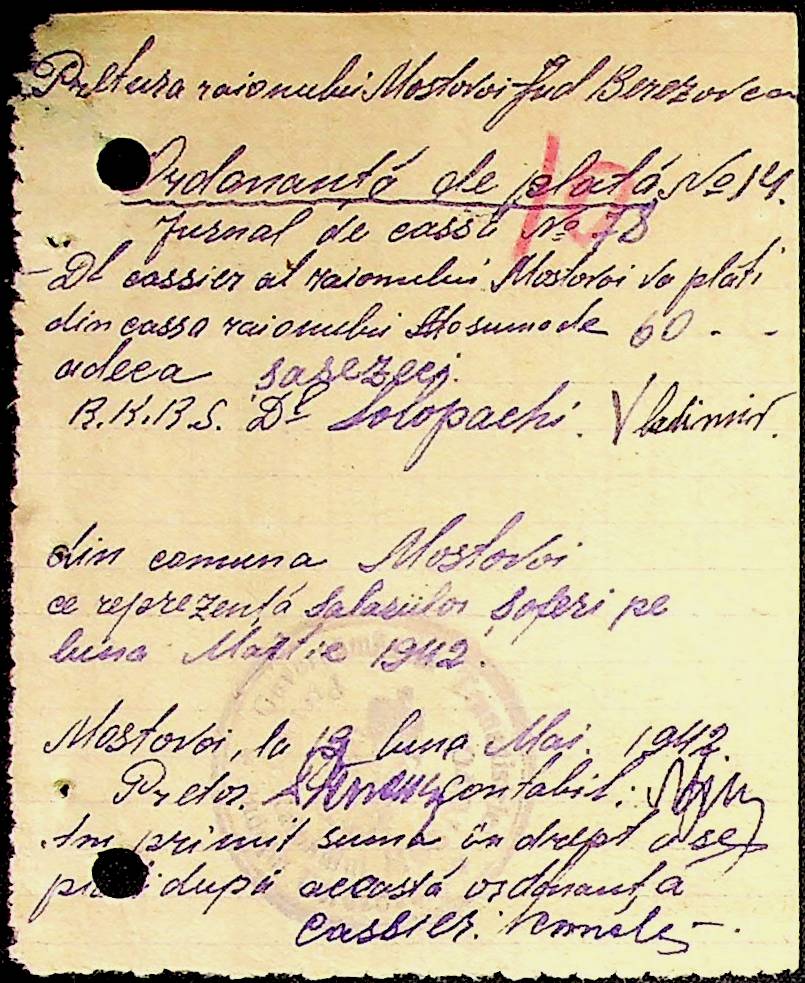 Pretura raionului Mostovoi Jud Berezovca
Ordonantă de plată No 14.
Jurnal de cassă No 78
- Dl cassier al raionului Mostovoi va plati
din cassa raionului suma de 60 - -
adeca sasezeci.
R.K.R.S. Dl Solopachi. Vladimir.
din comuna Mostovoi
ce reprezentă salariilor șoferi pe
luna Martie 1942.
Mostovoi, la 19 luna Mai. 1942
Pretor. Contabil:
Am primit suma în drept a se
după această ordonanță
Cassier: